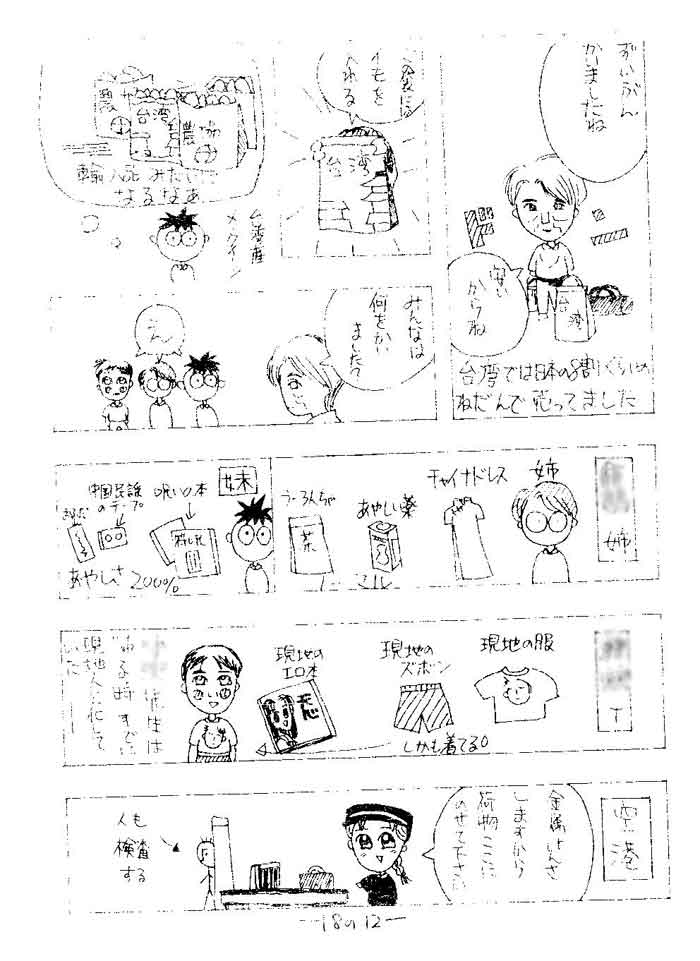 ずいぶん
かいましたね
安い
からね
台湾
台湾では日本の8割くらいの
ねだんで売ってました
この袋には
イモを
入れる
台湾
台湾
農協
輸入品みたいに
なるなあ
台湾産
メークイン
みんなは
何をかい
ました?
えー
姉
姉
チャイナドレス
あやしい薬
うーろんちゃ
茶
妹
呪いの本
中国民謡
のテープ
おふだ
符しれ
あやしさ
200%
T
現地の服
現地の
ズボン
しかも着てる。
現地の
エロ本
先生は
現地人に化して
いた
空港
金属けんさ
しますから
荷物ここに
のせて下さい
人も
検査
する
—18の12—